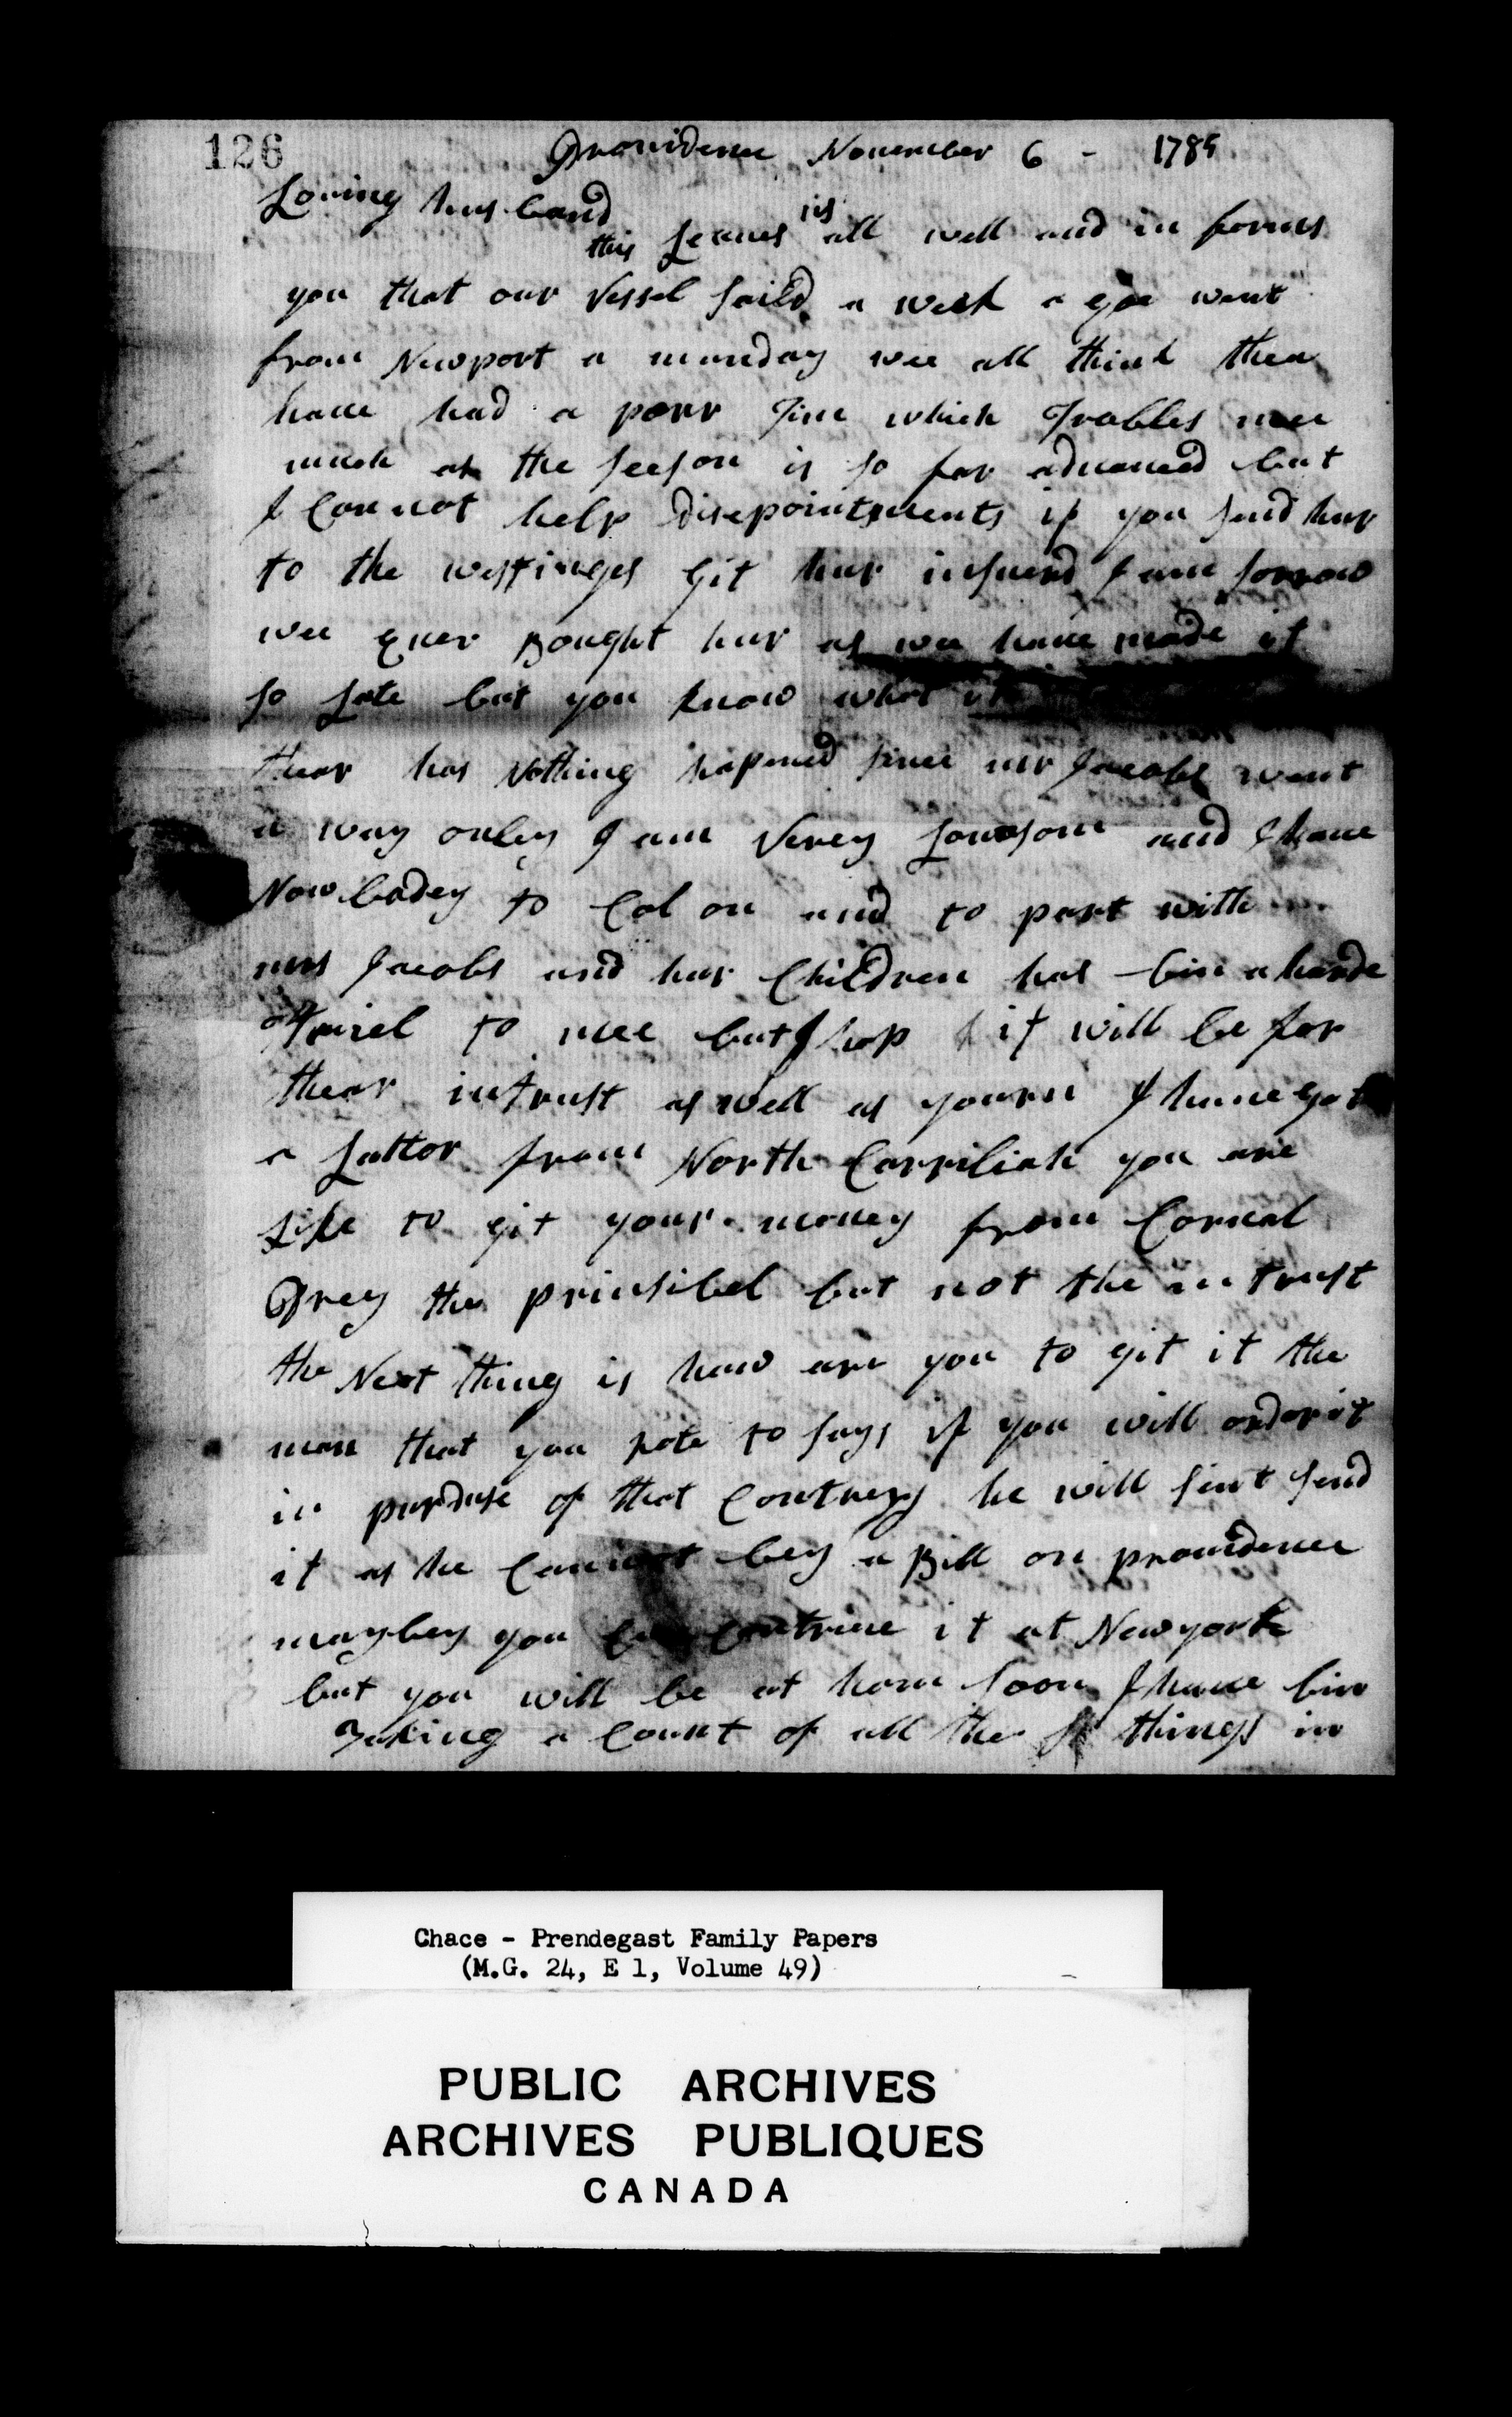 126
Providence November 6 - 1785
Loving husband
this Leaves us all well and in forms
you that our Vessel saild a week a goe went
from Newport a munday wee all think thea
have had a porr Time which Trobles mee
much as the seeson is so far advanced but
I Can not help disepointments if you send hur
to the westinges Git hur insuerd I am sorrow
wee Ever Bought hur as wee have made it
so Late but you know what
thear has Nothing hapened sinee mr Jacobs went
a way onley I am Verey Lonesom and I have
Now bodey to Col on and to part with
mrs Jacobs and hur Children has bin a harde
Triel to mee but I hop it will be for
thear intrust as well as yourn I have got
a Lattor from North Carriliah you are
Like to git your money from Cornal
Grey the prinsibel but not the intrust
the Next thing is how are you to git it the
man that you rote to says if you will order it
in purduse of that Contrey he will sint send
it as he Cannot bey a Bill on providence
maybey you Can Contrive it at Newyork
but you will be at hom soon I have bin
Taking a Count of all the things in
Chace - Prendegast Family Papers
(M.G. 24, E 1, Volume 49)
PUBLIC ARCHIVES
ARCHIVES PUBLIQUES
CANADA